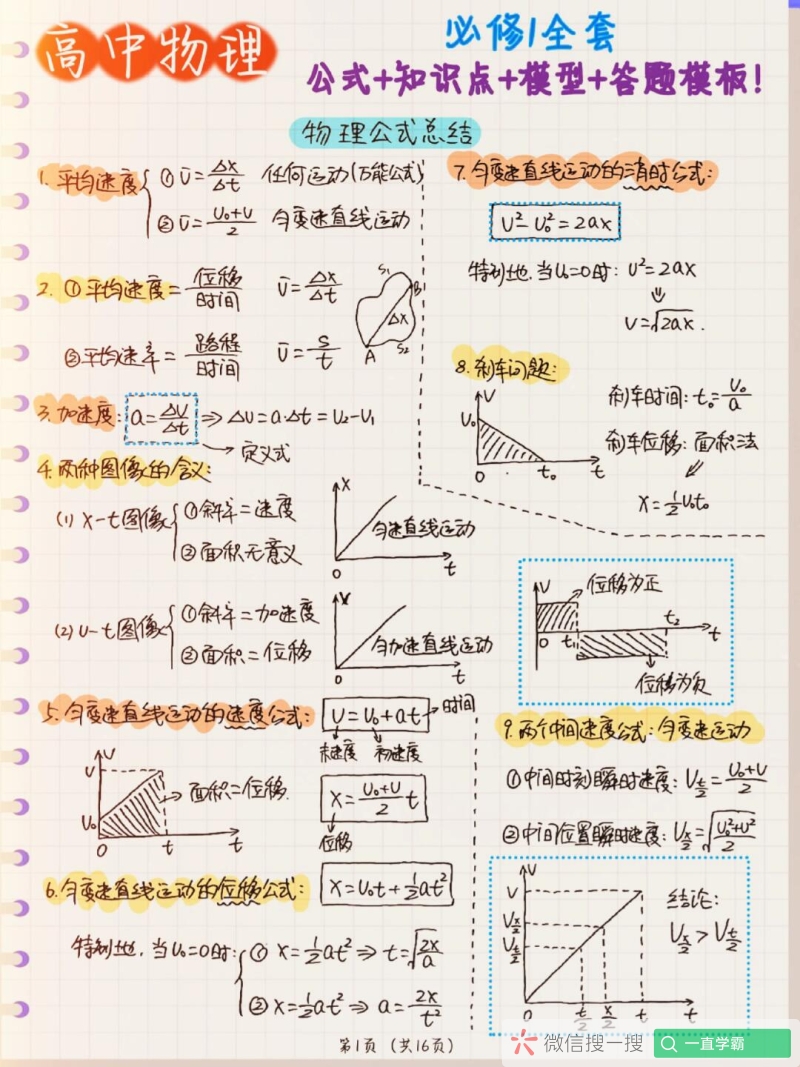 高中物理
必修1全套
公式+知识点+模型+答题模板!
物理公式总结
1. 平均速度
① v̄=Δx/Δt 任何运动(万能公式)
② v̄=(v₀+v)/2 匀变速直线运动
2. ①平均速度=位移/时间 v̄=Δx/Δt
②平均速率=路程/时间 v̄=s/t
S₁
B
Δx
A
S₂
3. 加速度: a=Δv/Δt ⇒ Δv=a·Δt=v₂-v₁
→定义式
4. 两种图像的含义:
(1) x-t图像
①斜率=速度
②面积无意义
x
匀速直线运动
0
t
(2) v-t图像
①斜率=加速度
②面积=位移
v
匀加速直线运动
0
t
5. 匀变速直线运动的速度公式: v=v₀+at →时间
末速度 初速度
v
v
v₀
0
t
t
→面积=位移.
x=(v₀+v)/2 t
位移
6. 匀变速直线运动的位移公式: x=v₀t+½at²
特别地, 当v₀=0时:
① x=½at² ⇒ t=√(2x/a)
② x=½at² ⇒ a=2x/t²
7. 匀变速直线运动的消时公式:
v²-v₀²=2ax
特别地, 当v₀=0时: v²=2ax
⇓
v=√2ax.
8. 刹车问题:
v
v₀
0
t₀
t
刹车时间: t₀=v₀/a
刹车位移: 面积法
x=½v₀t₀
v
位移为正
0
t₁
t₂
t
位移为负
9. 两个中间速度公式: 匀变速运动
①中间时刻瞬时速度: v_t/2=(v₀+v)/2
②中间位置瞬时速度: v_x/2=√((v₀²+v²)/2)
v
v
v_x/2
v_t/2
0
t/2
x/2
t
t
结论:
v_x/2>v_t/2
第1页 (共16页)
微信搜一搜
一直学霸